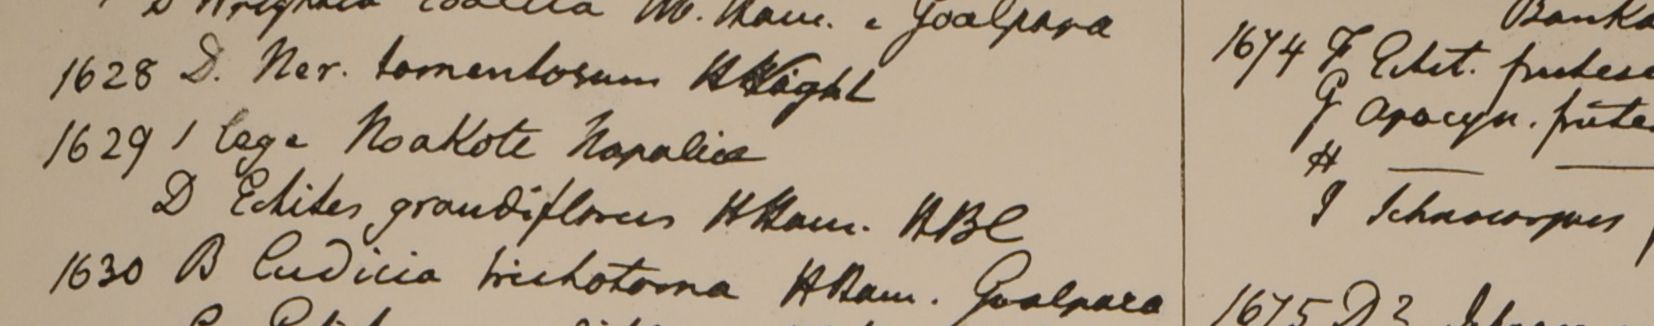 D Wrightia coaetta M. Ham. e Goalpara
1628 D. Ner. tomentosum HWight
1629 1 lege Noakote Napaliae
D Echites grandiflorus HHam. HBC
1630 B Cudicia trichotoma HHam. Goalpara
Banka
1674 F Echit. frutesc
G Apocyn. frute
H
I Ichnocarpus
1675 D 2